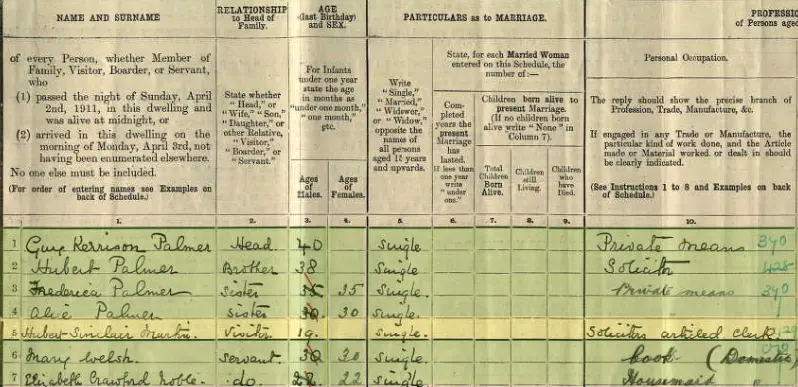 NAME AND SURNAME
RELATIONSHIP
to Head of
Family.
AGE
(last Birthday)
and SEX.
PARTICULARS as to MARRIAGE.
PROFESSIO
of Persons aged
of every Person, whether Member of
Family, Visitor, Boarder, or Servant,
who
(1) passed the night of Sunday, April
2nd, 1911, in this dwelling and
was alive at midnight, or
(2) arrived in this dwelling on the
morning of Monday, April 3rd, not
having been enumerated elsewhere.
No one else must be included.
(For order of entering names see Examples on
back of Schedule.)
State whether
"Head," or
"Wife," "Son,"
"Daughter," or
other Relative,
"Visitor,"
"Boarder," or
"Servant."
For Infants
under one year
state the age
in months as
"under one month,"
"one month,"
etc.
Ages
of
Males.
Ages
of
Females.
Write
"Single,"
"Married,"
"Widower,"
or "Widow,"
opposite the
names of
all persons
aged 15 years
and upwards.
State, for each Married Woman
entered on this Schedule, the
number of:—
Com-
pleted
years the
present
Marriage
has
lasted.
If less than
one year
write
"under
one."
Children born alive to
present Marriage.
(If no children born
alive write "None" in
Column 7).
Total
Children
Born
Alive.
Children
still
Living.
Children
who
have
Died.
Personal Occupation.
The reply should show the precise branch of
Profession, Trade, Manufacture, &c.
If engaged in any Trade or Manufacture, the
particular kind of work done, and the Article
made or Material worked or dealt in should
be clearly indicated.
(See Instructions 1 to 8 and Examples on back
of Schedule.)
1. 2. 3. 4. 5. 6. 7. 8. 9. 10.
1 Guy Kerrison Palmer Head 40 Single Private means 390
2 Hubert Palmer Brother 38 Single Solicitor
3 Frederica Palmer Sister 35 35 Single. Private means 390
4 Alice Palmer Sister 30 30 Single.
5 Hubert Sinclair Martin Visitor 19. Single. Solicitors articled clerk
6 Mary Welsh. Servant 30 30 Single. Cook (Domestic)
7 Elizabeth Crawford Noble. do. 22 22 Single Housemaid